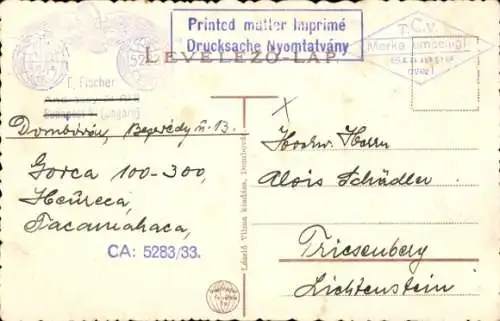 Printed matter Imprimé
Drucksache Nyomtatvány
LEVELEZŐ-LAP
T. C. V.
T. Fischer
Budapest V. (Ungarn)
Dombóvár, Bezerédy u. 13.
Gorca 100-300,
Heŭreca,
Tacamahaca,
CA: 5283/33.
László Vilmos kiadása, Dombovár
Hochw. Herrn
Alois Schädler
Triesenberg
Lichtenstein